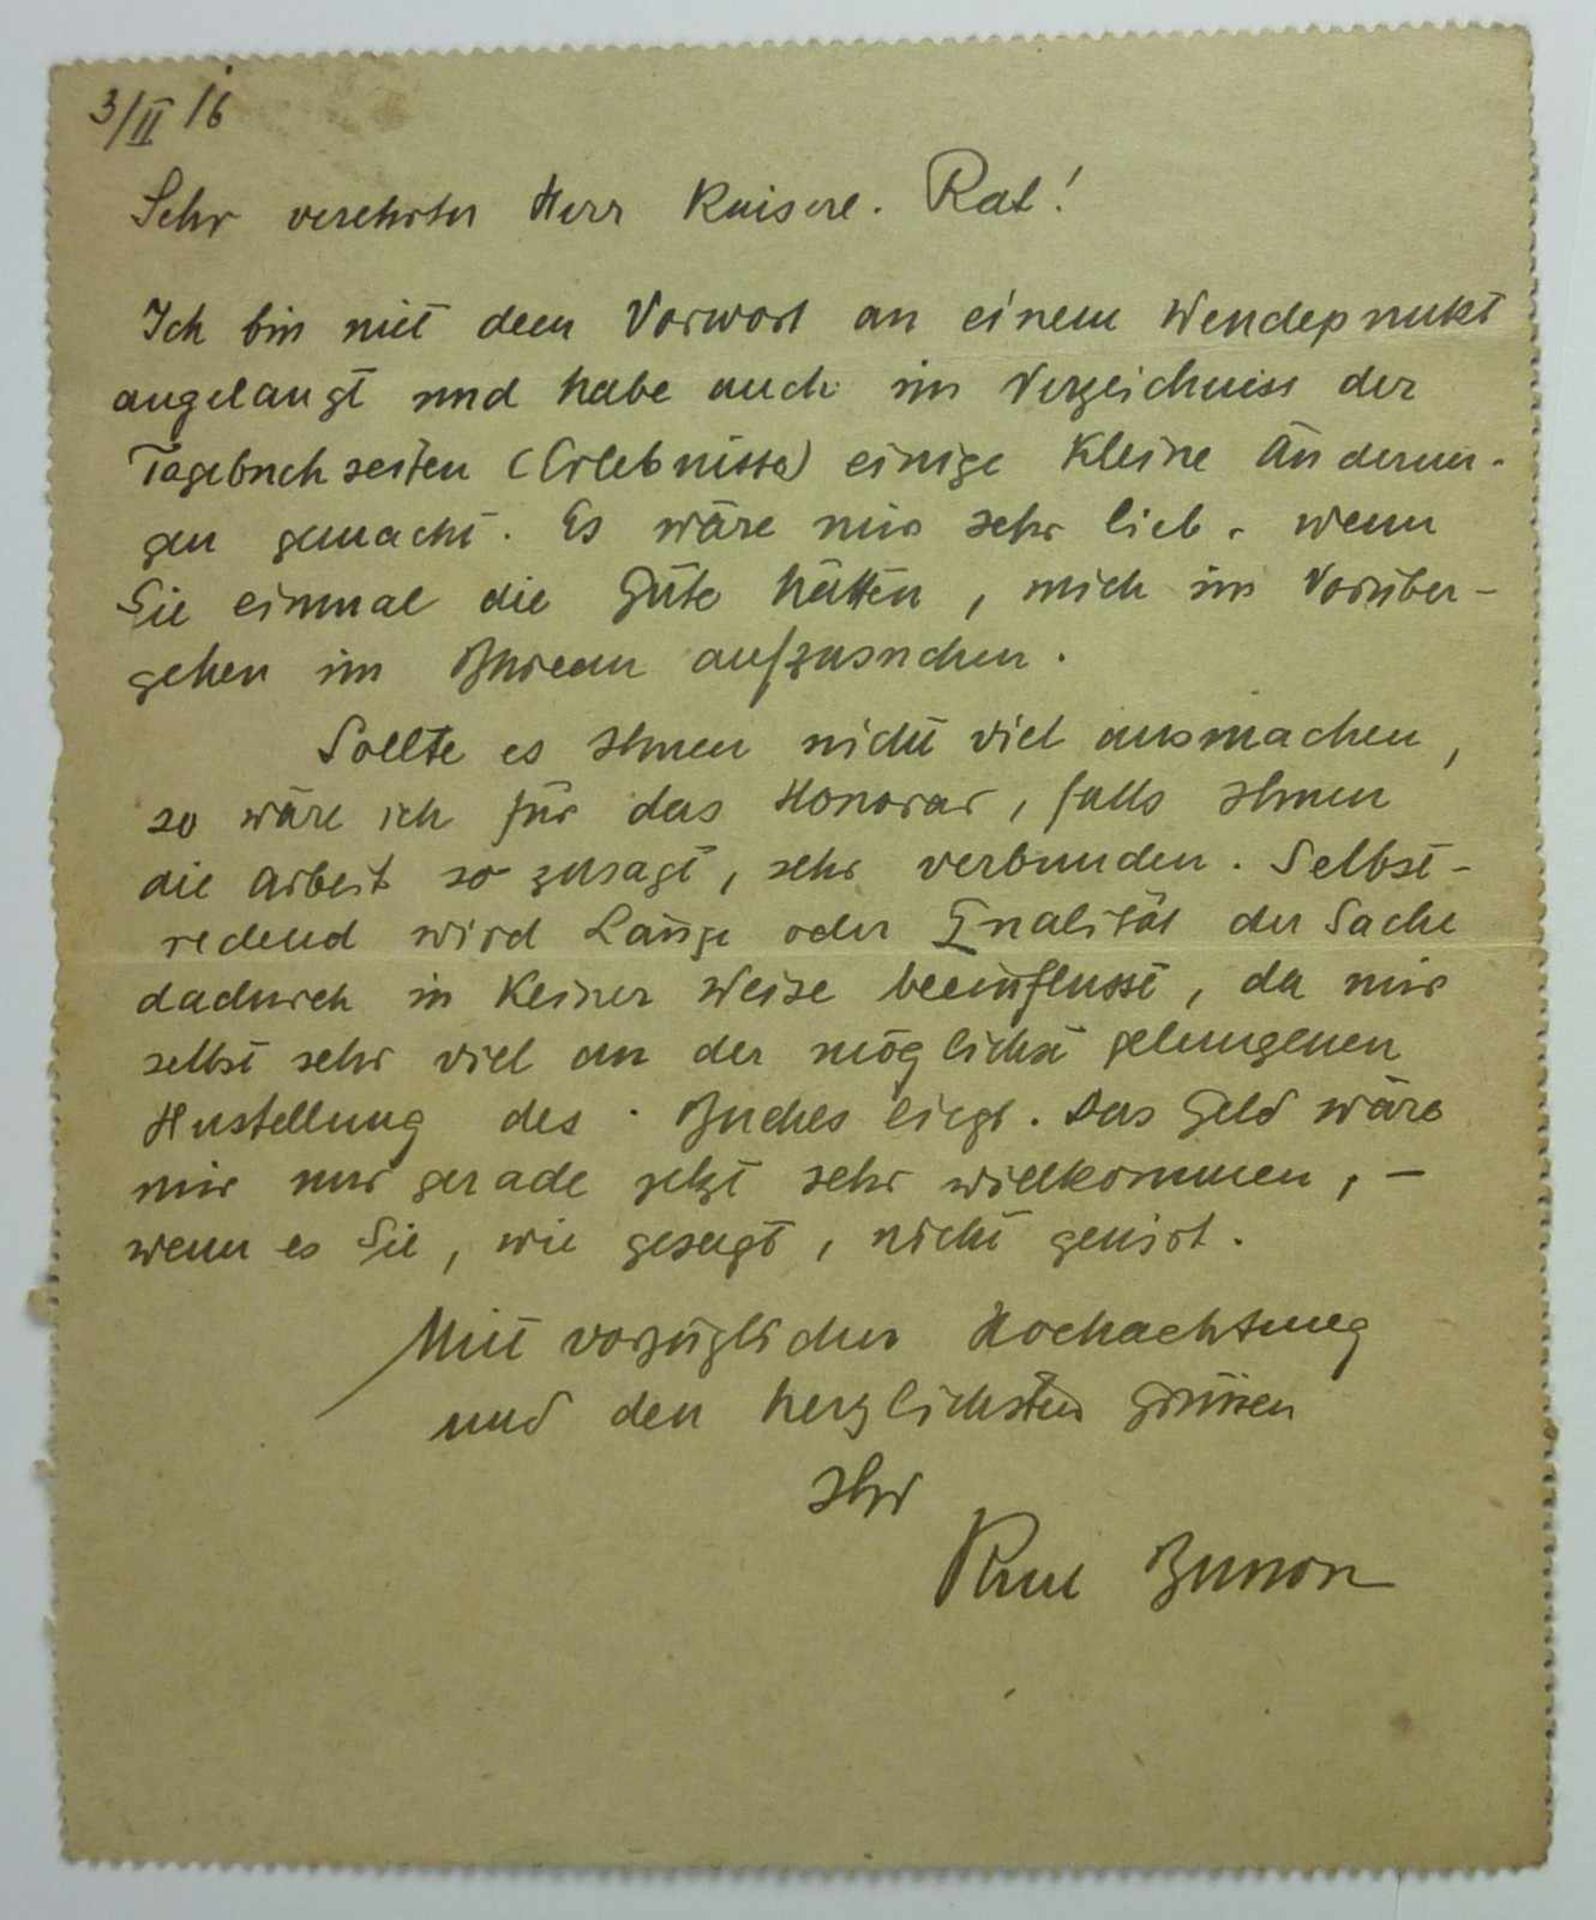 3/II 16
Sehr verehrter Herr Kaiserl. Rat!
Ich bin mit dem Vorwort an einem Wendepunkt
angelangt und habe auch im Verzeichniss der
Tagebuchseiten (Erlebnisse) einige kleine Änderun-
gen gemacht. Es wäre mir sehr lieb, wenn
Sie einmal die Güte hätten, mich im Vorüber-
gehen im Bureau aufzusuchen.
Sollte es Ihnen nicht viel ausmachen,
so wäre ich für das Honorar, falls Ihnen
die Arbeit so zusagt, sehr verbunden. Selbst-
redend wird Länge oder Qualität der Sache
dadurch in keiner Weise beeinflusst, da mir
selbst sehr viel an der möglichst gelungenen
Herstellung des Buches liegt. Das Geld wäre
mir nur gerade jetzt sehr willkommen, –
wenn es Sie, wie gesagt, nicht genirt.
Mit vorzüglicher Hochachtung
und den herzlichsten Grüssen
Ihr
Paul